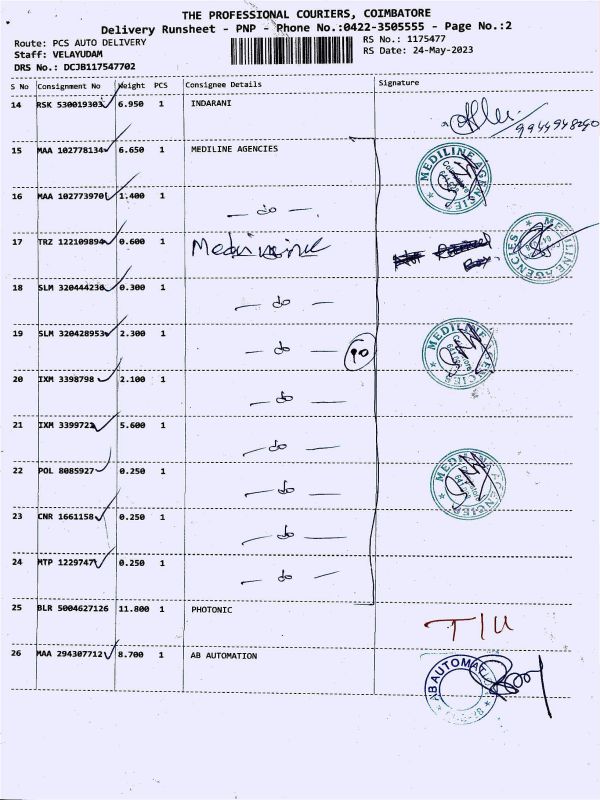 THE PROFESSIONAL COURIERS, COIMBATORE
Delivery Runsheet - PNP - Phone No.:0422-3505555 - Page No.:2
Route: PCS AUTO DELIVERY RS No.: 1175477
Staff: VELAYUDAM RS Date: 24-May-2023
DRS No.: DCJB117547702
S No Consignment No Weight PCS Consignee Details Signature
14 RSK 530019303 6.950 1 INDARANI
9944948240
15 MAA 102778134 6.650 1 MEDILINE AGENCIES
MEDILINE AGENCIES
16 MAA 102773970 1.400 1
— do —
17 TRZ 122109894 0.600 1
MEDILINE AGENCIES
18 SLM 320444236 0.300 1
— do —
19 SLM 320428953 2.300 1
— do — 10
MEDILINE AGENCIES
20 IXM 3398798 2.100 1
— do —
21 IXM 3399722 5.600 1
— do —
22 POL 8085927 0.250 1
— do —
MEDILINE AGENCIES
23 CNR 1661158 0.250 1
— do —
24 MTP 1229747 0.250 1
— do —
25 BLR 5004627126 11.800 1 PHOTONIC
T/U
26 MAA 294307712 8.700 1 AB AUTOMATION
AB AUTOMATI